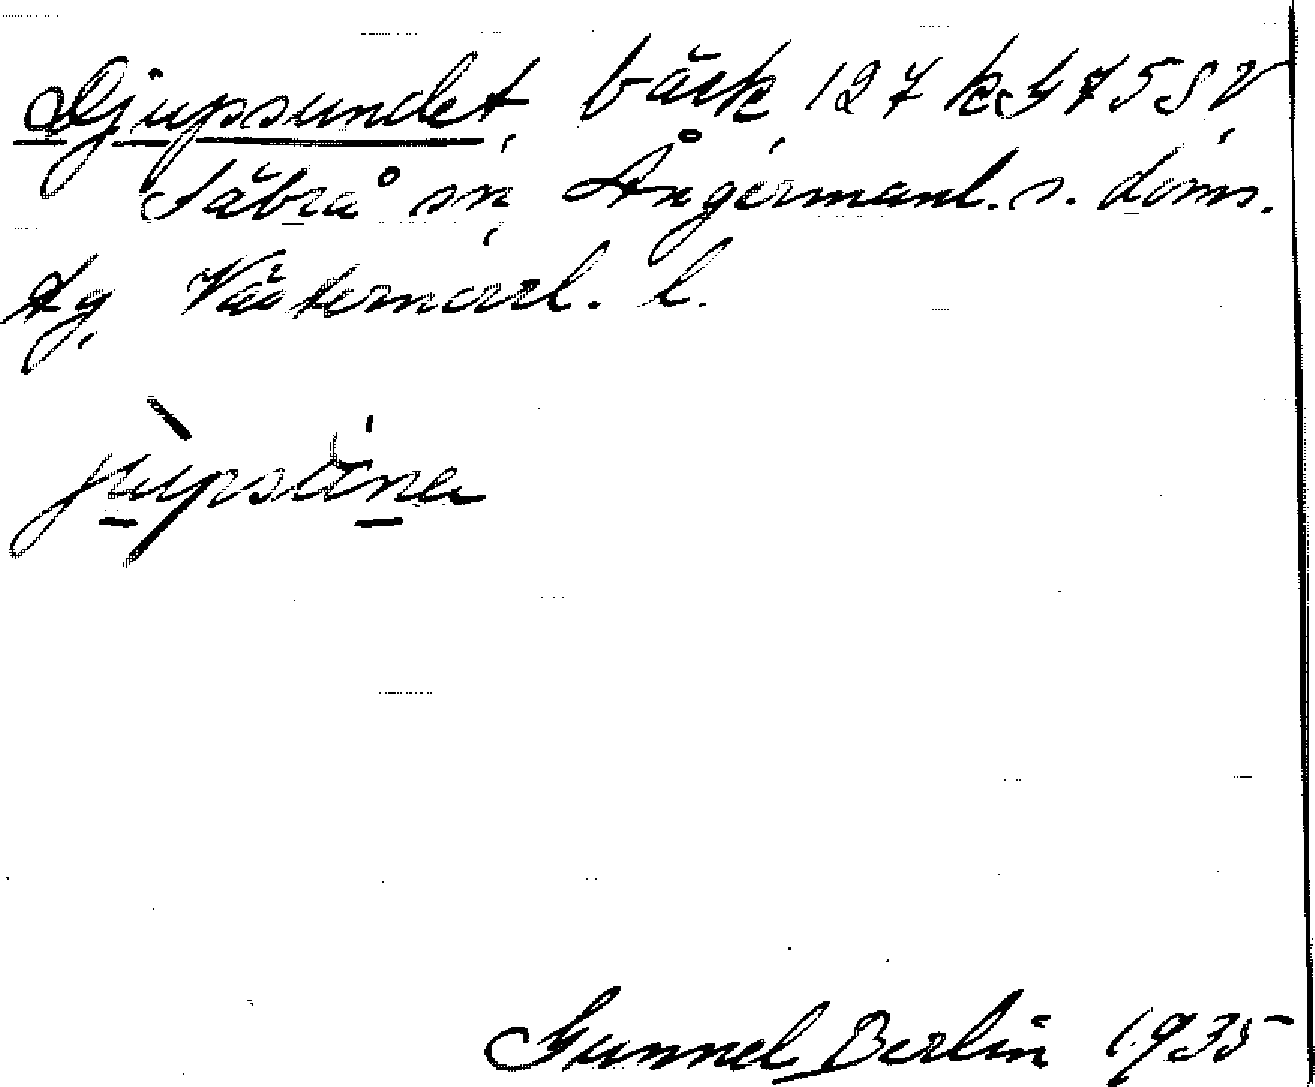 Djupsundet, bäck, 127 kg 75 SV,
Säbrå sn, Ångermanl. s. doms.
tg, Västernorrl. l.
Gunnel Berlin 1935